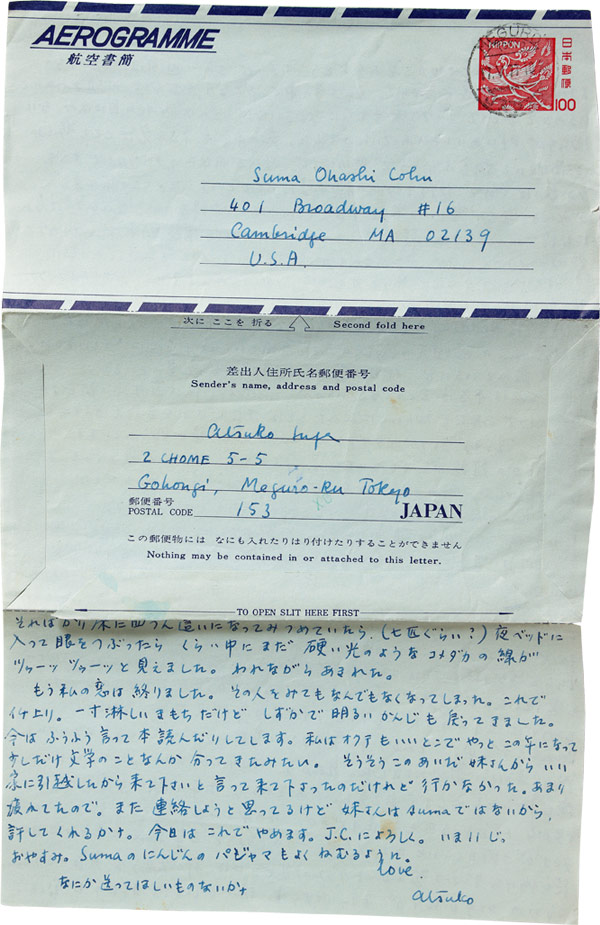 AEROGRAMME
航空書簡
NIPPON
日本郵便
100
Suma Ohashi Cohn
401 Broadway #16
Cambridge MA 02139
U.S.A.
次に ここを 折る Second fold here
差出人住所氏名郵便番号
Sender's name, address and postal code
Atsuko Suga
2 CHOME 5-5
Gohongi, Meguro-Ku Tokyo
郵便番号
POSTAL CODE 153 JAPAN
この郵便物には なにも入れたりはり付けたりすることができません
Nothing may be contained in or attached to this letter.
TO OPEN SLIT HERE FIRST
そればかり床に四つん這いになってみつめていたら、(七匹ぐらい?) 夜ベッドに
入って眼をつぶったら くらい中にまだ 硬い光のような コメダカの線が
ツゥーッ ツゥーッと見えました。われながらあきれた。
もう私の恋は終りました。その人をみてもなんでもなくなってしまった。これで
仕上り。一寸淋しいきもちだけど しずかで明るいかんじも 戻ってきました。
今は ふうふう言って本読んだりしてします。私はオクテもいいとこで やっと この年になって
少しだけ文学のことなんか 合ってきたみたい。そうそうこのあいだ 妹さんから いい
家に引越したから来て下さいと言って来て下さったのだけれど行かなかった。あまり
疲れてたので。また 連絡しようと思ってるけど 妹さんは Sumaではないから、
許してくれるかナ。今日は これでやめます。J.C.によろしく。
おやすみ。Sumaのにんじんの パジャマもよくねむるように。
love.
なにか送ってほしいものないかナ
Atsuko